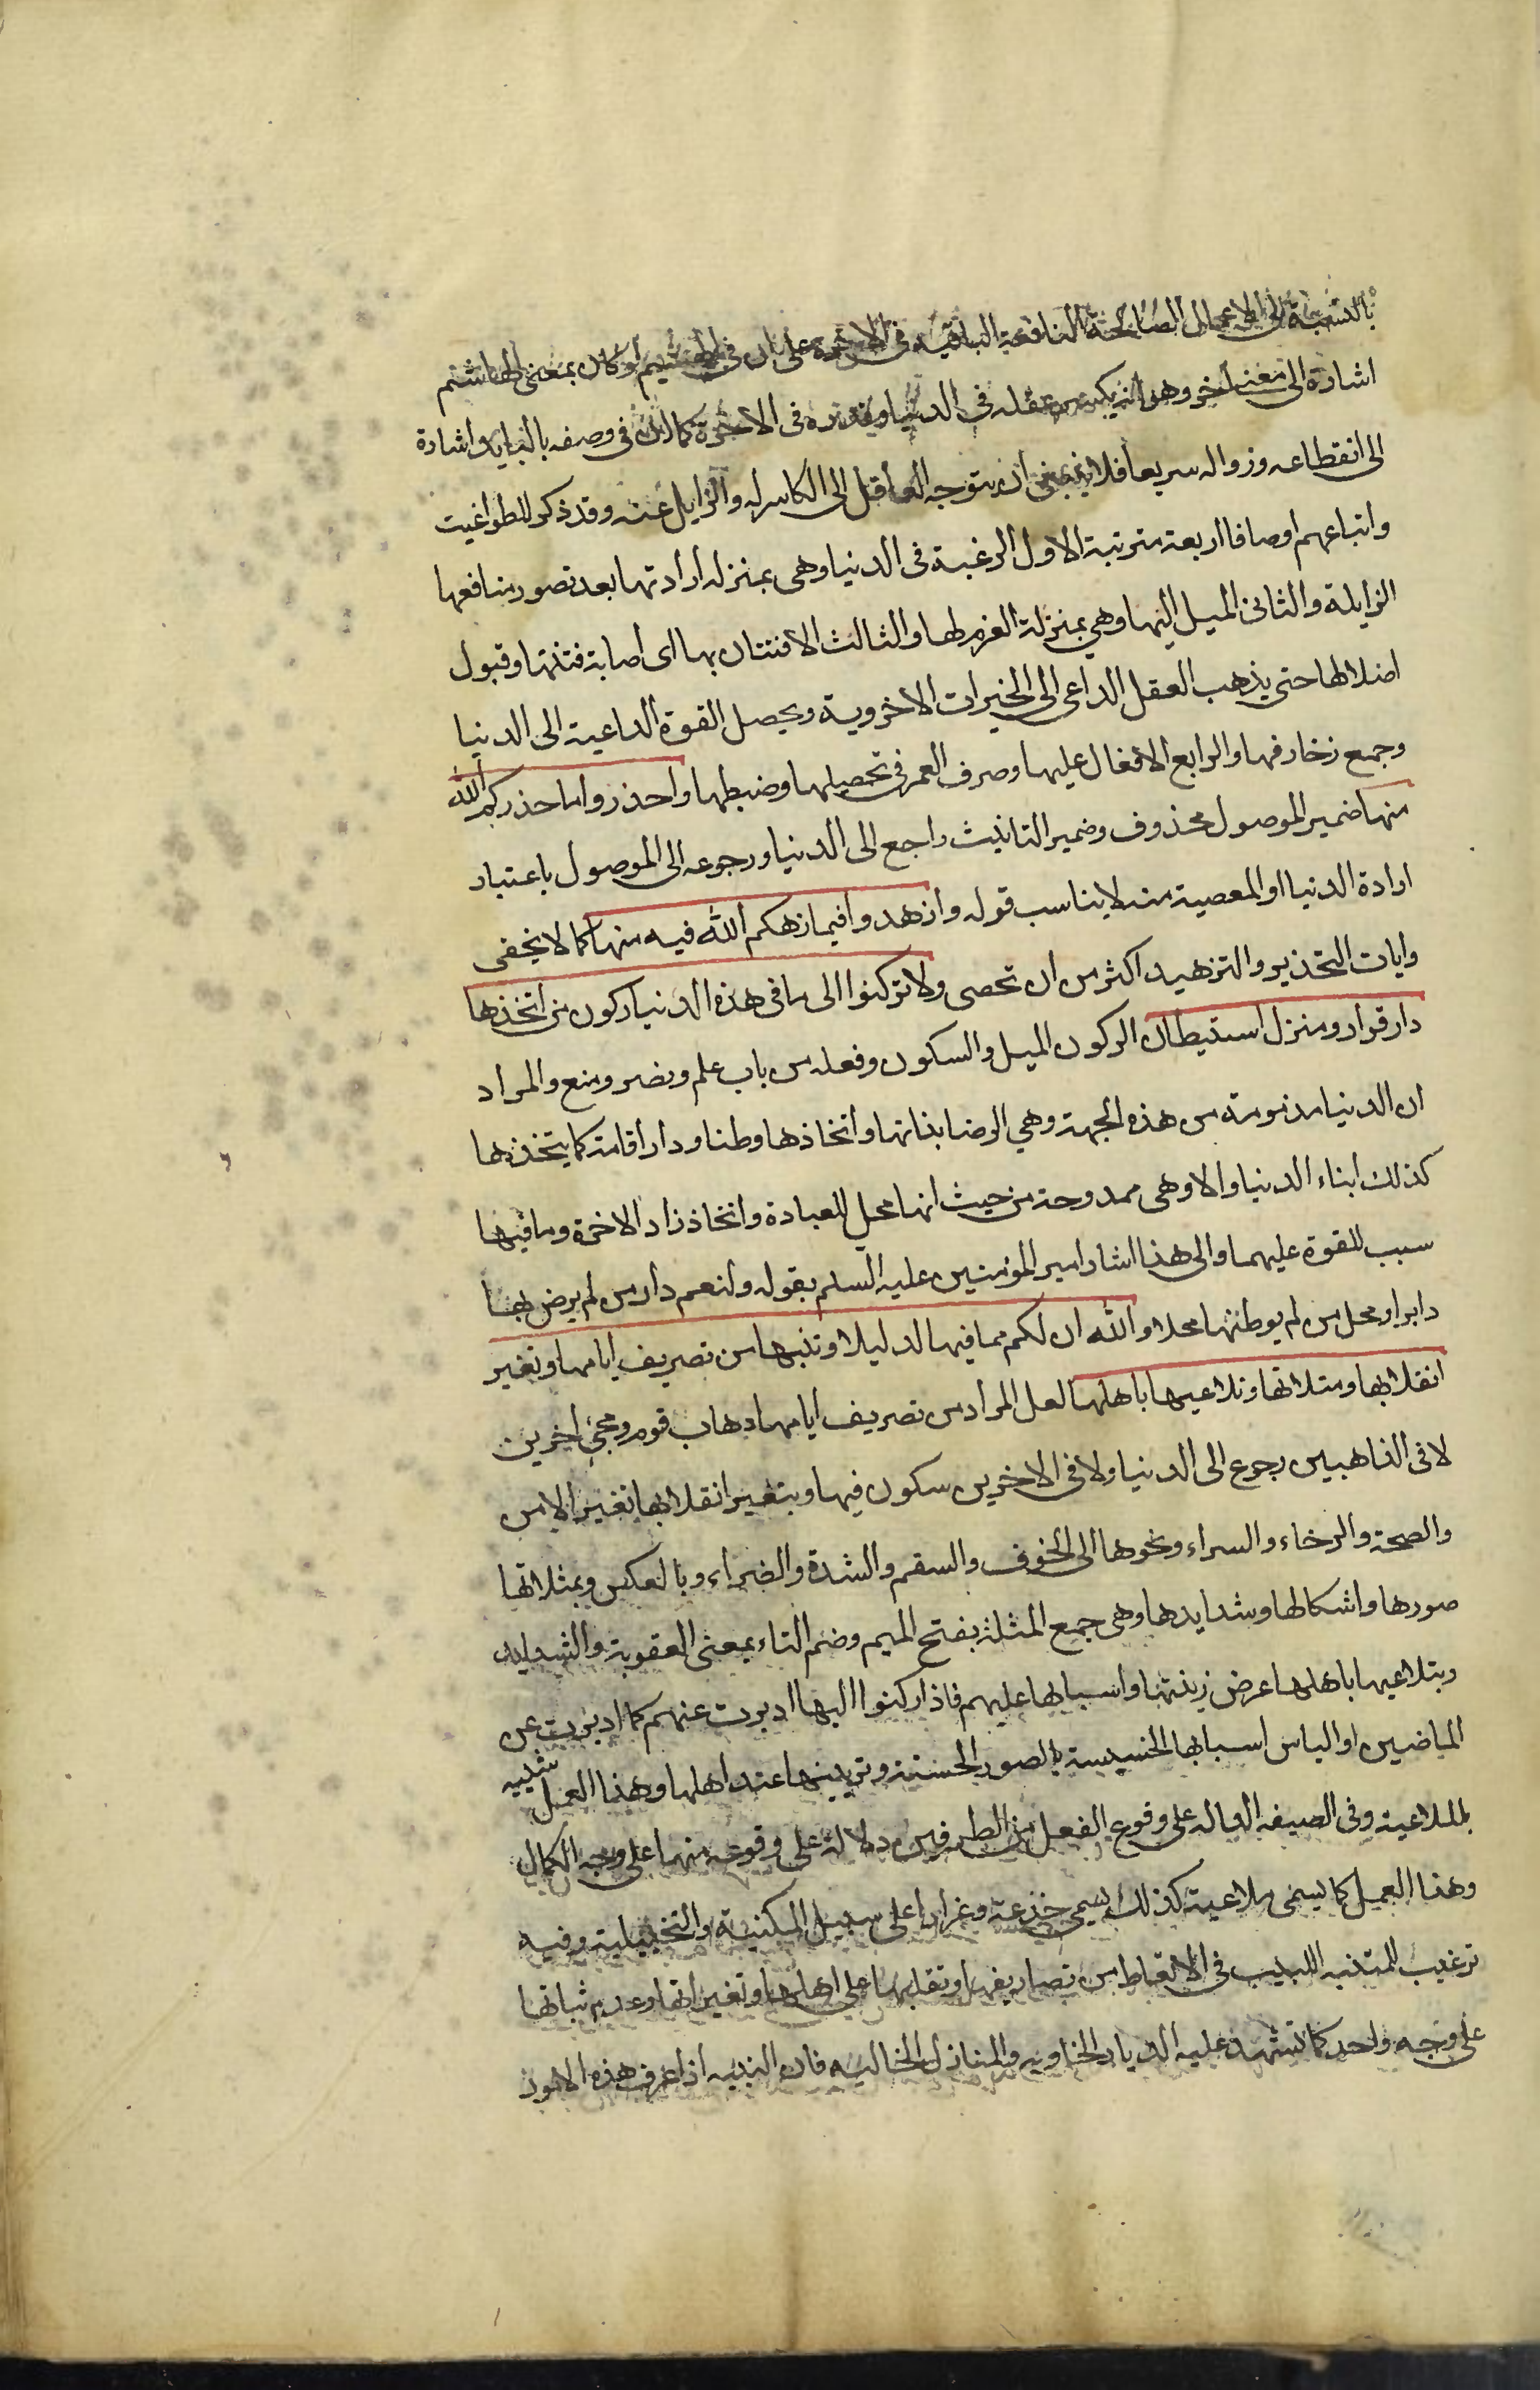 بالنسبة الى الاعمال الصالحة النافعة الباقية فى الاخرة على ان فى الهشيم لو كان بمعنى الهاشم
اشارة الى معنى اخر وهو انه يكسر عقله فى الدنيا وقدره فى الاخرة كما ان فى وصفه بالبايد اشارة
الى انقطاعه وزواله سريعا فلا ينبغى ان يتوجه العاقل الى الكاسر له والزايل عنه وقد ذكر للطواغيت
واتباعهم اوصافا اربعة مترتبة الاول الرغبة فى الدنيا وهى بمنزله ارادتها بعد تصور منافعها
الزايلة والثانى الميل اليها وهي بمنزلة العزم لها والثالث الافتتان بها اى اصابة فتنتها وقبول
اضلالها حتى يذهب العقل الداعى الى الخيرات الاخروية ويحصل القوة الداعية الى الدنيا
وجمع زخارفها والرابع الاقبال عليها وصرف العمر فى تحصيلها وضبطها واحذروا ما حذركم الله
منها ضمير الموصول محذوف وضمير التانيث راجع الى الدنيا ورجوعه الى الموصول باعتبار
ارادة الدنيا او المعصية منه لا يناسب قوله وازهدوا فيما زهدكم الله فيه منها كما لا يخفى
وايات التحذير والتزهيد اكثر من ان تحصى ولا تركنوا الى ما فى هذه الدنيا ركون من اتخذها
دار قرار ومنزل استيطان الركون الميل والسكون وفعله من باب علم ونصر ومنع والمراد
ان الدنيا مذمومة من هذه الجهة وهي الرضا بذاتها واتخاذها وطنا ودار اقامة كما يتخذها
كذلك ابناء الدنيا والا وهى ممدوحة من حيث انها محل للعبادة واتخاذ زاد الاخرة وما فيها
سبب للقوة عليهما والى هذا اشار امير المؤمنين عليه السلم بقوله ولنعم دار من لم يرض بها
دارا ومحل من لم يوطنها محلا والله ان لكم مما فيها لدليلا وتنبيها من تصريف ايامها وتغير
انقلابها ومثلاتها وتلاعبها باهلها لعل المراد من تصريف ايامها ذهاب قوم ومجئ اخرين
لا فى الذاهبين رجوع الى الدنيا ولا فى الاخرين سكون فيها وبتغير انقلابها تغير الامن
والصحة والرخاء والسراء ونحوها الى الخوف والسقم والشدة والضراء وبالعكس وبمثلاتها
صورها واشكالها وشدايدها وهى جمع المثلة بفتح الميم وضم الثاء بمعنى العقوبة والشدايد
وبتلاعبها باهلها عرض زينتها واسبابها عليهم فاذا ركنوا اليها ادبرت عنهم كما ادبرت عن
الماضين او الباس اسبابها الخسيسة بالصور الحسنة وتزيينها عند اهلها وهذا العمل شبيه
بالملاعبة وفى الصيغه الداله على وقوع الفعل من الطرفين دلالة على وقوعه منها على وجه الكمال
وهذا العمل كما يسمى ملاعبة كذلك يسمى خدعة وغرارا على سبيل المكنية والتخييلية وفيه
ترغيب للمتنبه اللبيب فى الاتعاظ من تصاريفها وتقلبها على اهلها وتغيراتها وعدم ثباتها
على وجه واحد كما تشهد عليه الديار الخاويه والمنازل الخاليه فان النبيه اذا عرف هذه الامور